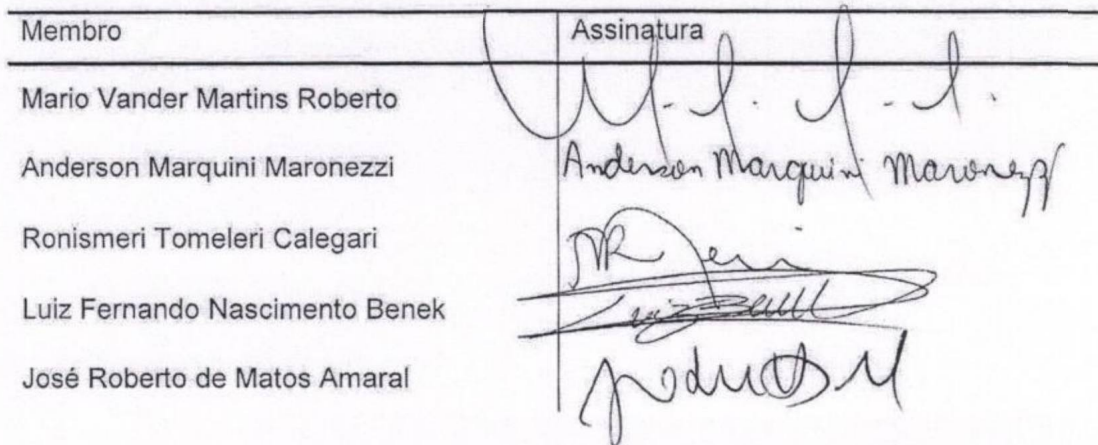 Membro Assinatura
Mario Vander Martins Roberto
Anderson Marquini Maronezzi Anderson Marquini Maronezzi
Ronismeri Tomeleri Calegari
Luiz Fernando Nascimento Benek Luiz
José Roberto de Matos Amaral